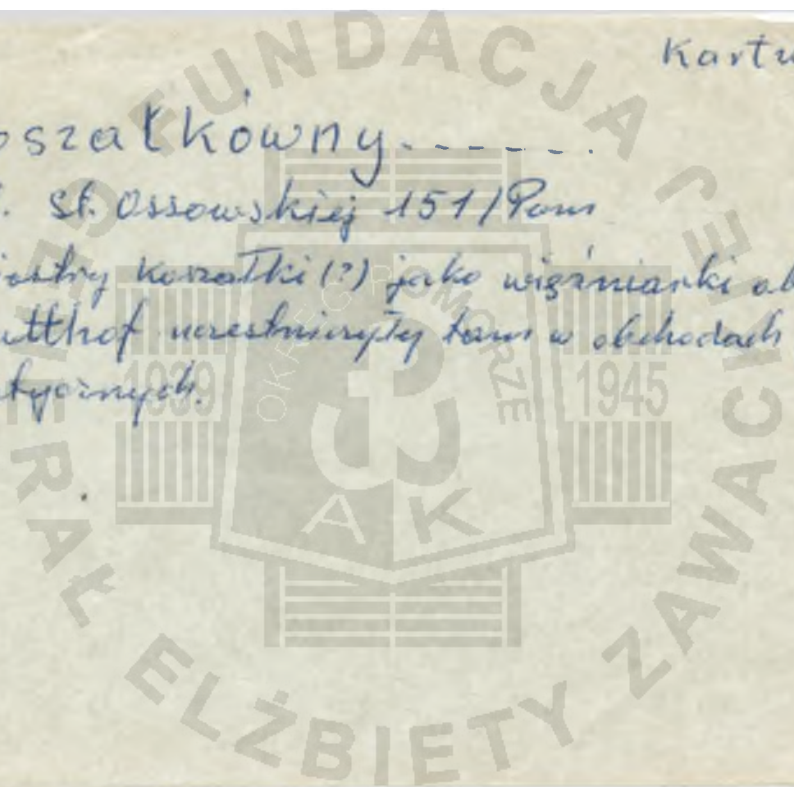 Kartu
oszałkówny.------
. St. Ossowskiej 151/Pom
iostry Koszałki (?) jako więźniarki ob
utthof uczestniczyły tam w obchodach
tycznych.
FUNDACJA GENERAŁ ELŻBIETY ZAWACKIEJ
OKRĘG POMORZE
1939
1945
AK